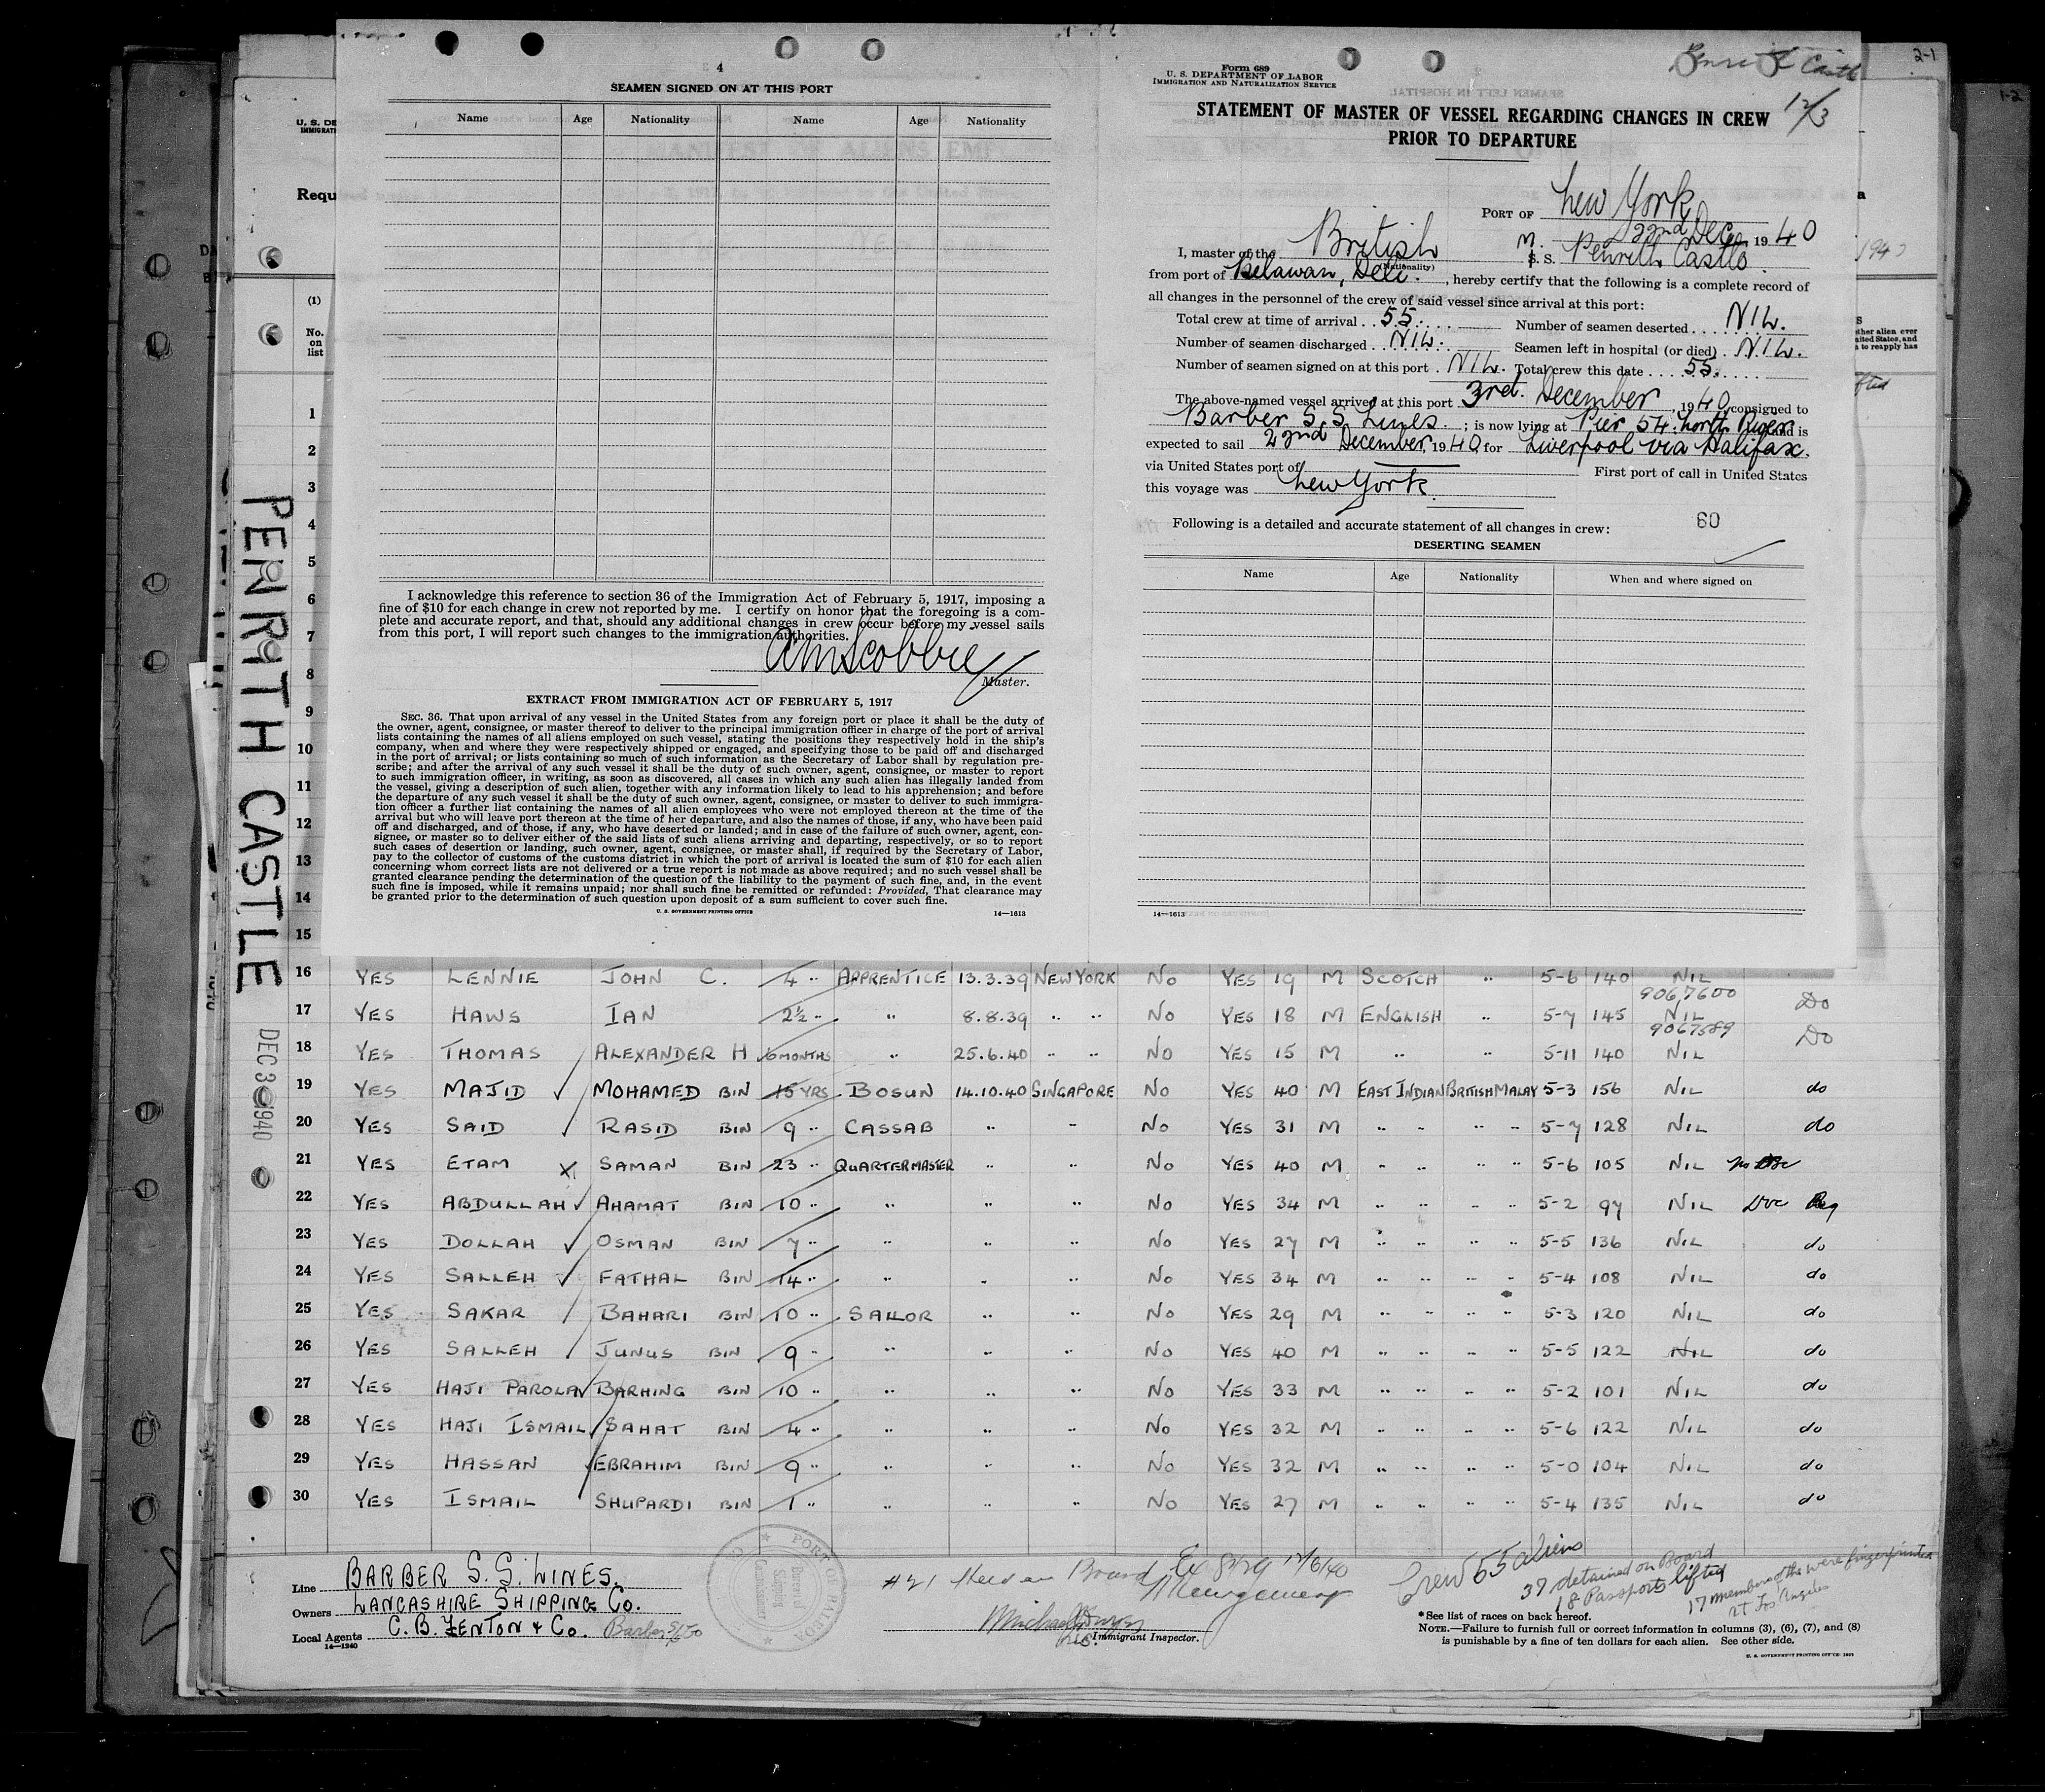 4
SEAMEN SIGNED ON AT THIS PORT
Name Age Nationality Name Age Nationality
I acknowledge this reference to section 36 of the Immigration Act of February 5, 1917, imposing a
fine of $10 for each change in crew not reported by me. I certify on honor that the foregoing is a com-
plete and accurate report, and that, should any additional changes in crew occur before my vessel sails
from this port, I will report such changes to the immigration authorities.
Master.
EXTRACT FROM IMMIGRATION ACT OF FEBRUARY 5, 1917
SEC. 36. That upon arrival of any vessel in the United States from any foreign port or place it shall be the duty of
the owner, agent, consignee, or master thereof to deliver to the principal immigration officer in charge of the port of arrival
lists containing the names of all aliens employed on such vessel, stating the positions they respectively hold in the ship's
company, when and where they were respectively shipped or engaged, and specifying those to be paid off and discharged
in the port of arrival; or lists containing so much of such information as the Secretary of Labor shall by regulation pre-
scribe; and after the arrival of any such vessel it shall be the duty of such owner, agent, consignee, or master to report
to such immigration officer, in writing, as soon as discovered, all cases in which any such alien has illegally landed from
the vessel, giving a description of such alien, together with any information likely to lead to his apprehension; and before
the departure of any such vessel it shall be the duty of such owner, agent, consignee, or master to deliver to such immigra-
tion officer a further list containing the names of all alien employees who were not employed thereon at the time of the
arrival but who will leave port thereon at the time of her departure, and also the names of those, if any, who have been paid
off and discharged, and of those, if any, who have deserted or landed; and in case of the failure of such owner, agent, con-
signee, or master so to deliver either of the said lists of such aliens arriving and departing, respectively, or so to report
such cases of desertion or landing, such owner, agent, consignee, or master shall, if required by the Secretary of Labor,
pay to the collector of customs of the customs district in which the port of arrival is located the sum of $10 for each alien
concerning whom correct lists are not delivered or a true report is not made as above required; and no such vessel shall be
granted clearance pending the determination of the question of the liability to the payment of such fine, and, in the event
such fine is imposed, while it remains unpaid; nor shall such fine be remitted or refunded: Provided, That clearance may
be granted prior to the determination of such question upon deposit of a sum sufficient to cover such fine.
U. S. GOVERNMENT PRINTING OFFICE 14—1613
Form 689
U. S. DEPARTMENT OF LABOR
IMMIGRATION AND NATURALIZATION SERVICE
STATEMENT OF MASTER OF VESSEL REGARDING CHANGES IN CREW 12/3
PRIOR TO DEPARTURE
PORT OF New York
22nd Dec 1940
I, master of the British M. S. S. Penrith Castle
(Nationality)
from port of Belawan, Deli, hereby certify that the following is a complete record of
all changes in the personnel of the crew of said vessel since arrival at this port:
Total crew at time of arrival 55. Number of seamen deserted NIL.
Number of seamen discharged NIL. Seamen left in hospital (or died) NIL.
Number of seamen signed on at this port NIL. Total crew this date 55.
The above-named vessel arrived at this port 3rd. December, 1940, consigned to
Barber S.S. Lines; is now lying at Pier 54. North River and is
expected to sail 22nd December, 1940, for Liverpool via Halifax.
via United States port of First port of call in United States
this voyage was New York.
Following is a detailed and accurate statement of all changes in crew: 60
DESERTING SEAMEN
Name Age Nationality When and where signed on
14—1613
2-1
1-2
U. S. DE
IMMIGRATI
Requ
(1)
No. on list
1
2
3
4
5
6
7
8
9
10
11
12
13
14
15
PENRITH CASTLE
DEC 3 1940
16 YES LENNIE JOHN C. 4 " APPRENTICE 13.3.39 NEW YORK NO YES 19 M SCOTCH " 5-6 140 NIL
9067600
17 YES HAWS IAN 2½ " " 8.8.39 " " NO YES 18 M ENGLISH " 5-7 145 NIL Do
9067589
18 YES THOMAS ALEXANDER H 6 MONTHS " 25.6.40 " " NO YES 15 M " " 5-11 140 NIL Do
19 YES MAJID MOHAMED BIN 15 YRS BOSUN 14.10.40 SINGAPORE NO YES 40 M EAST INDIAN BRITISH MALAY 5-3 156 NIL do
20 YES SAID RASID BIN 9 " CASSAB " " NO YES 31 M " " " " 5-7 128 NIL do
21 YES ETAM X SAMAN BIN 23 " QUARTERMASTER " " NO YES 40 M " " " " 5-6 105 NIL
22 YES ABDULLAH AHAMAT BIN 10 " " " " NO YES 34 M " " " " 5-2 97 NIL
23 YES DOLLAH OSMAN BIN 7 " " " " NO YES 27 M " " " " 5-5 136 NIL do
24 YES SALLEH FATHAL BIN 14 " " " " NO YES 34 M " " " " 5-4 108 NIL do
25 YES SAKAR BAHARI BIN 10 " SAILOR " " NO YES 29 M " " " " 5-3 120 NIL do
26 YES SALLEH JUNUS BIN 9 " " " " NO YES 40 M " " " " 5-5 122 NIL do
27 YES HAJI PAROLA BARHING BIN 10 " " " " NO YES 33 M " " " " 5-2 101 NIL do
28 YES HAJI ISMAIL SAHAT BIN 4 " " " " NO YES 32 M " " " " 5-6 122 NIL do
29 YES HASSAN EBRAHIM BIN 9 " " " " NO YES 32 M " " " " 5-0 104 NIL do
30 YES ISMAIL SHUPARDI BIN 1 " " " " NO YES 27 M " " " " 5-4 135 NIL do
Line BARBER S.S. LINES.
Owners LANCASHIRE SHIPPING CO.
Local Agents C. B. FENTON & CO.
14—1240
PORT OF BALBOA
Immigrant Inspector.
Crew 55 aliens
37 detained on Board
18 Passports lifted
17 members of the were fingerprinted
at Los Angeles
*See list of races on back hereof.
NOTE.—Failure to furnish full or correct information in columns (3), (6), (7), and (8)
is punishable by a fine of ten dollars for each alien. See other side.